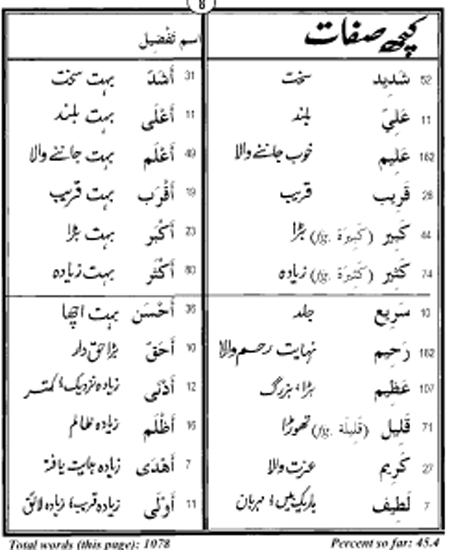 8
کچھ صفات اسم تفضیل
52 شَدِيد سخت 31 أَشَدّ بہت سخت
11 عَلِيّ بلند 11 أَعْلَى بہت بلند
162 عَلِيم خوب جاننے والا 49 أَعْلَم بہت جاننے والا
26 قَرِيب قریب 19 أَقْرَب بہت قریب
44 كَبِير (fg. كَبِيرَة) بڑا 23 أَكْبَر بہت بڑا
74 كَثِير (fg. كَثِيرَة) زیادہ 80 أَكْثَر بہت زیادہ
10 سَرِيع جلد 36 أَحْسَن بہت اچھا
182 رَحِيم نہایت رحم والا 10 أَحَقّ بڑا حق دار
107 عَظِيم بڑا، بزرگ 12 أَدْنَى زیادہ نزدیک، کمتر
71 قَلِيل (fg. قَلِيلَة) تھوڑا 16 أَظْلَم زیادہ ظالم
27 كَرِيم عزت والا 7 أَهْدَى زیادہ ہدایت یافتہ
7 لَطِيف باریک بیں، مہربان 11 أَوْلَى زیادہ قریب، زیادہ لائق
Total words (this page): 1078 Percent so far: 45.4